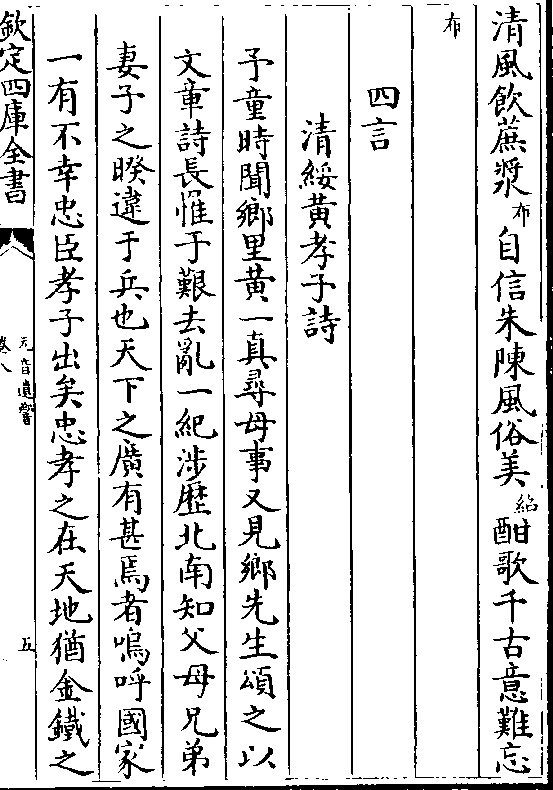 清風飲蔗漿布自信朱陳風俗美紹酣歌千古意難忘
布
四言
清綏黃孝子詩
予童時聞鄉里黃一真尋母事又見鄉先生頌之以
文章詩長惟于艱去亂一紀涉歷北南知父母兄弟
妻子之暌違于兵也天下之廣有甚焉者嗚呼國家
一有不幸忠臣孝子出矣忠孝之在天地猶金鐵之
欽定四庫全書
元音遺響
卷八
五